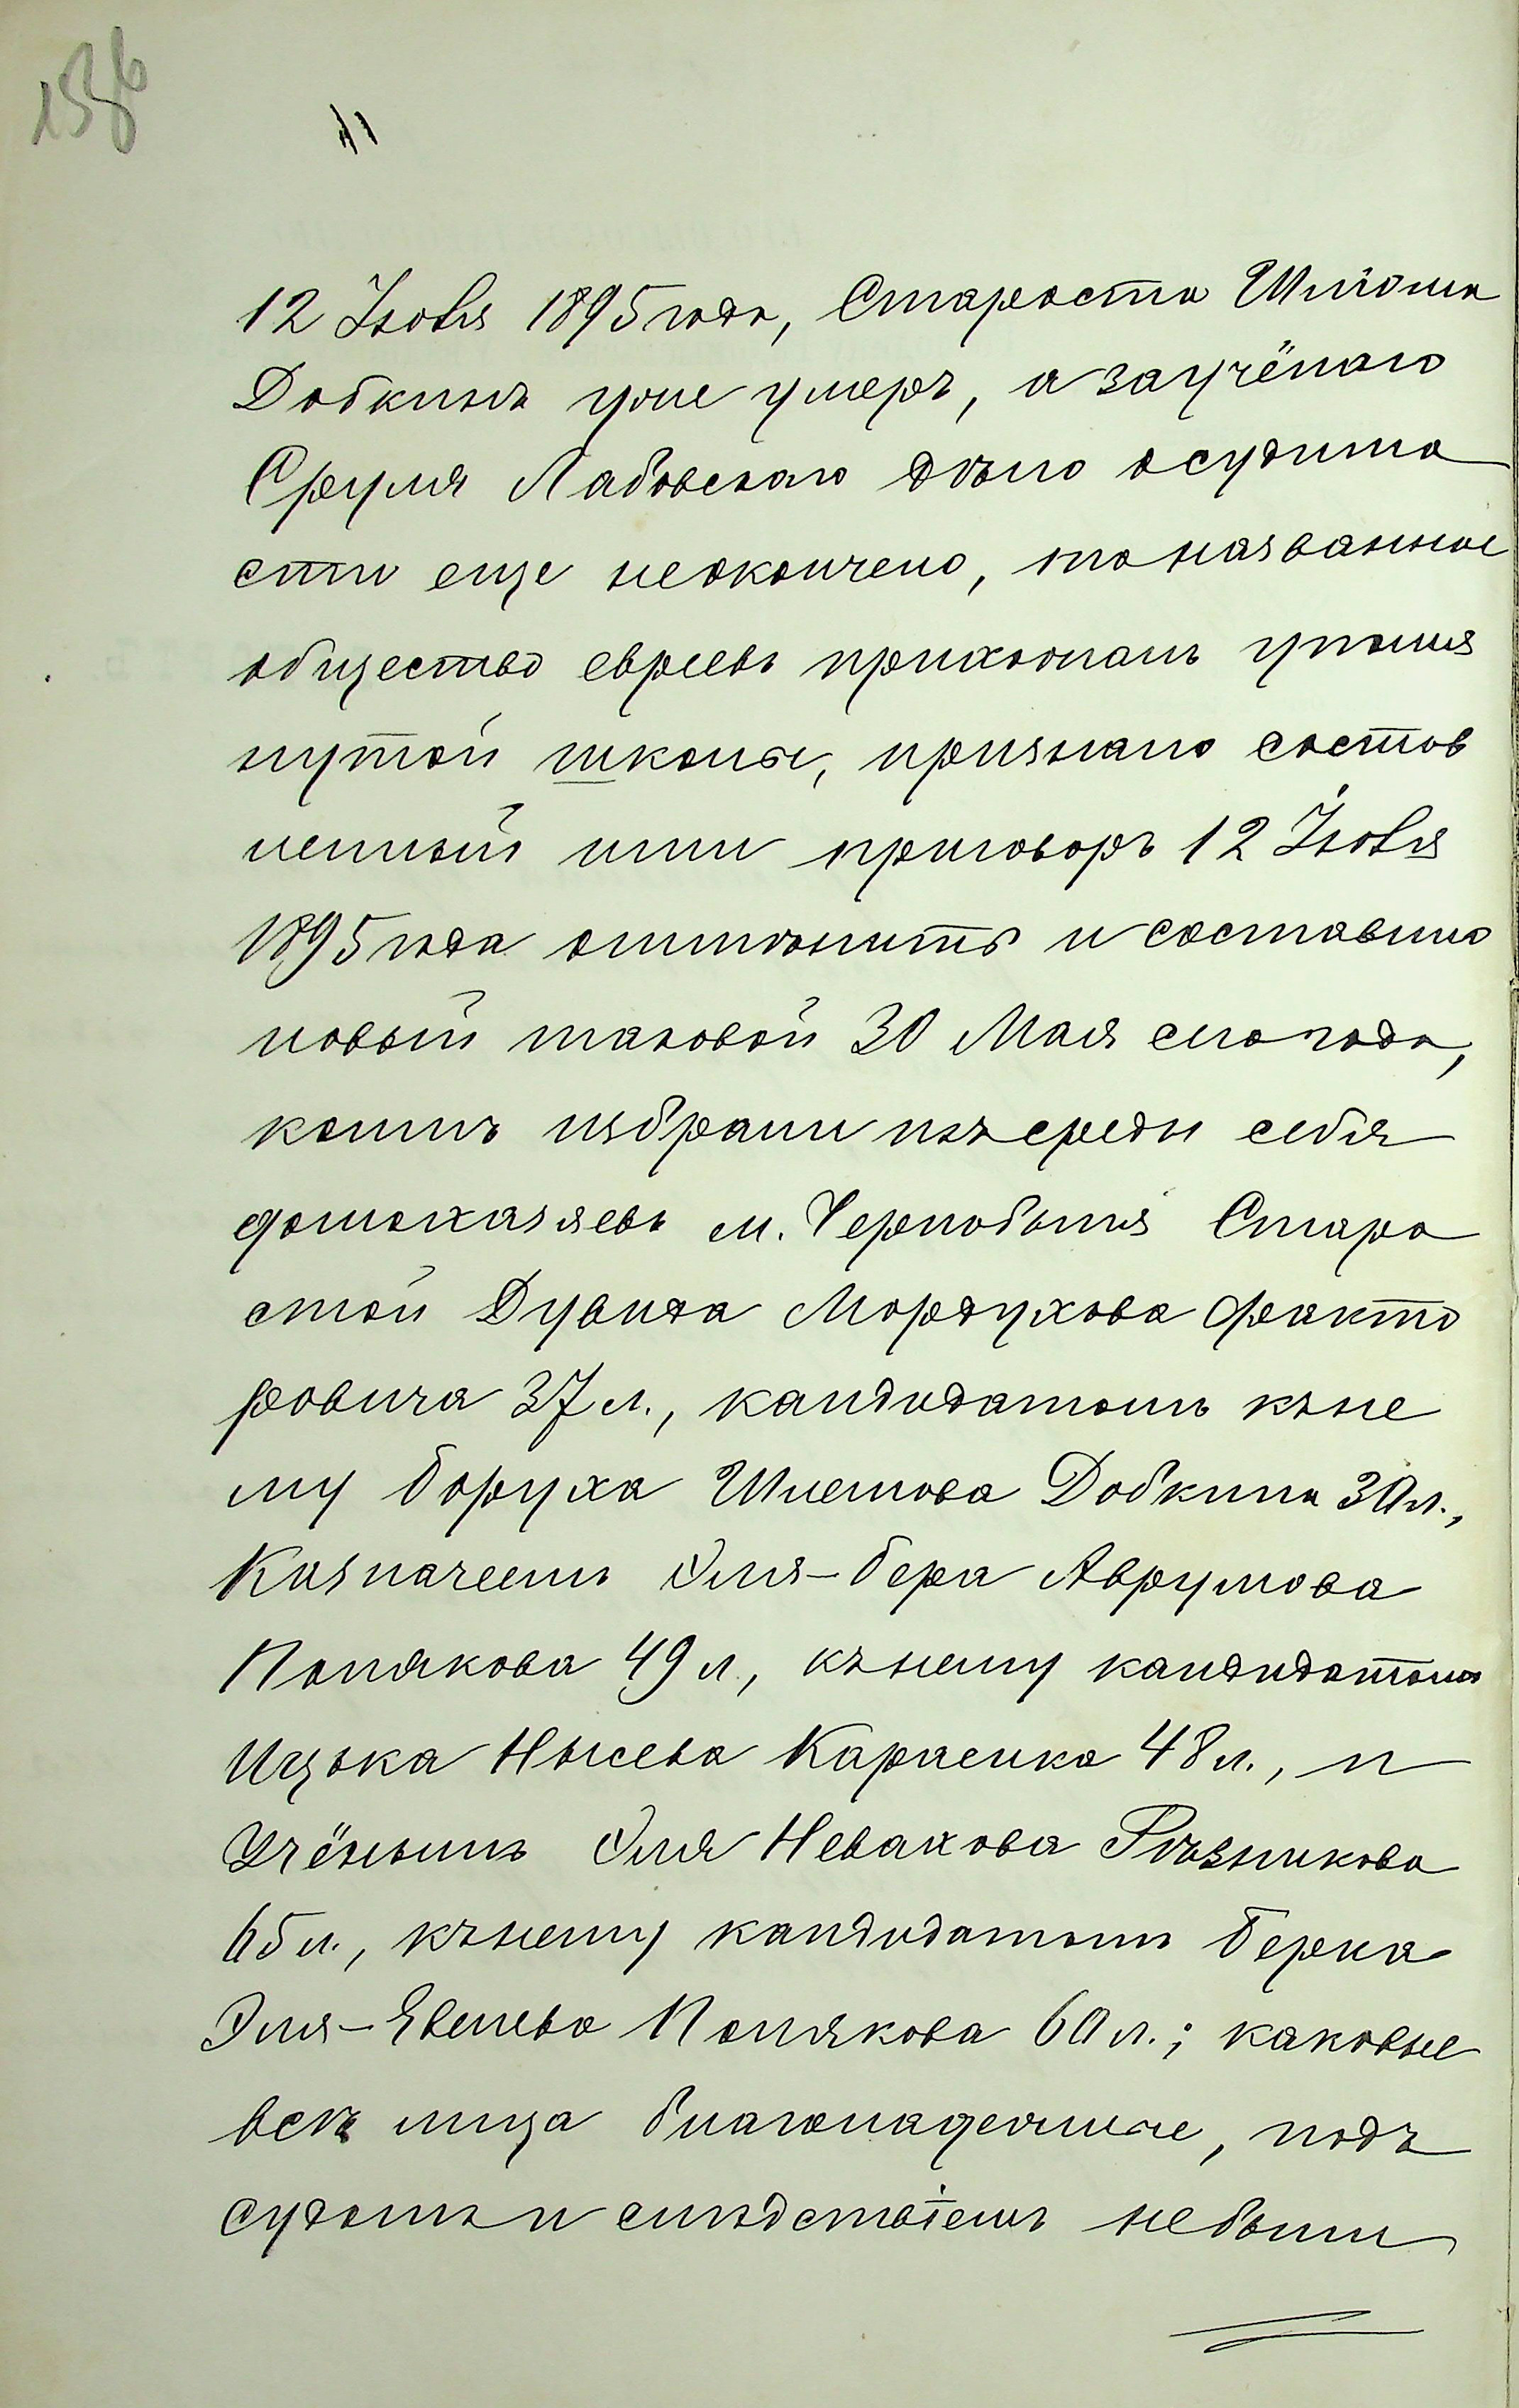 12 Іюня 1895 года, Староста Шлёома
Добкинъ уже умеръ, а за учёнаго
Сруля Лабовскаго дѣло о судимо
сти еще неокончено, то названное
общество евреевъ прихожанъ упомя
нутой школы, признало состав
ленный ими приговоръ 12 Іюня
1895 года отмѣнить и составило
новый таковой 30 Мая сего года,
коимъ избрали изъ среды себя
домохазяевъ м. Чернобыля Старо
стой Дувида Мордухова Факто
ровича 37 л., кандидатомъ къ не
му Боруха Шлемова Добкина 30 л.,
Казначеемъ Эля-Бера Аврумова
Полякова 49 л., къ нему кандидатомъ
Ицька Нысева Карпенко 48 л., и
Учёнымъ Эля Невахова Рѣзникова
65 л., къ нему кандидатомъ Берка
Эля-Евелева Полякова 60 л.; каковые
всѣ лица благонадежные, подъ
судомъ и слѣдствіемъ не были